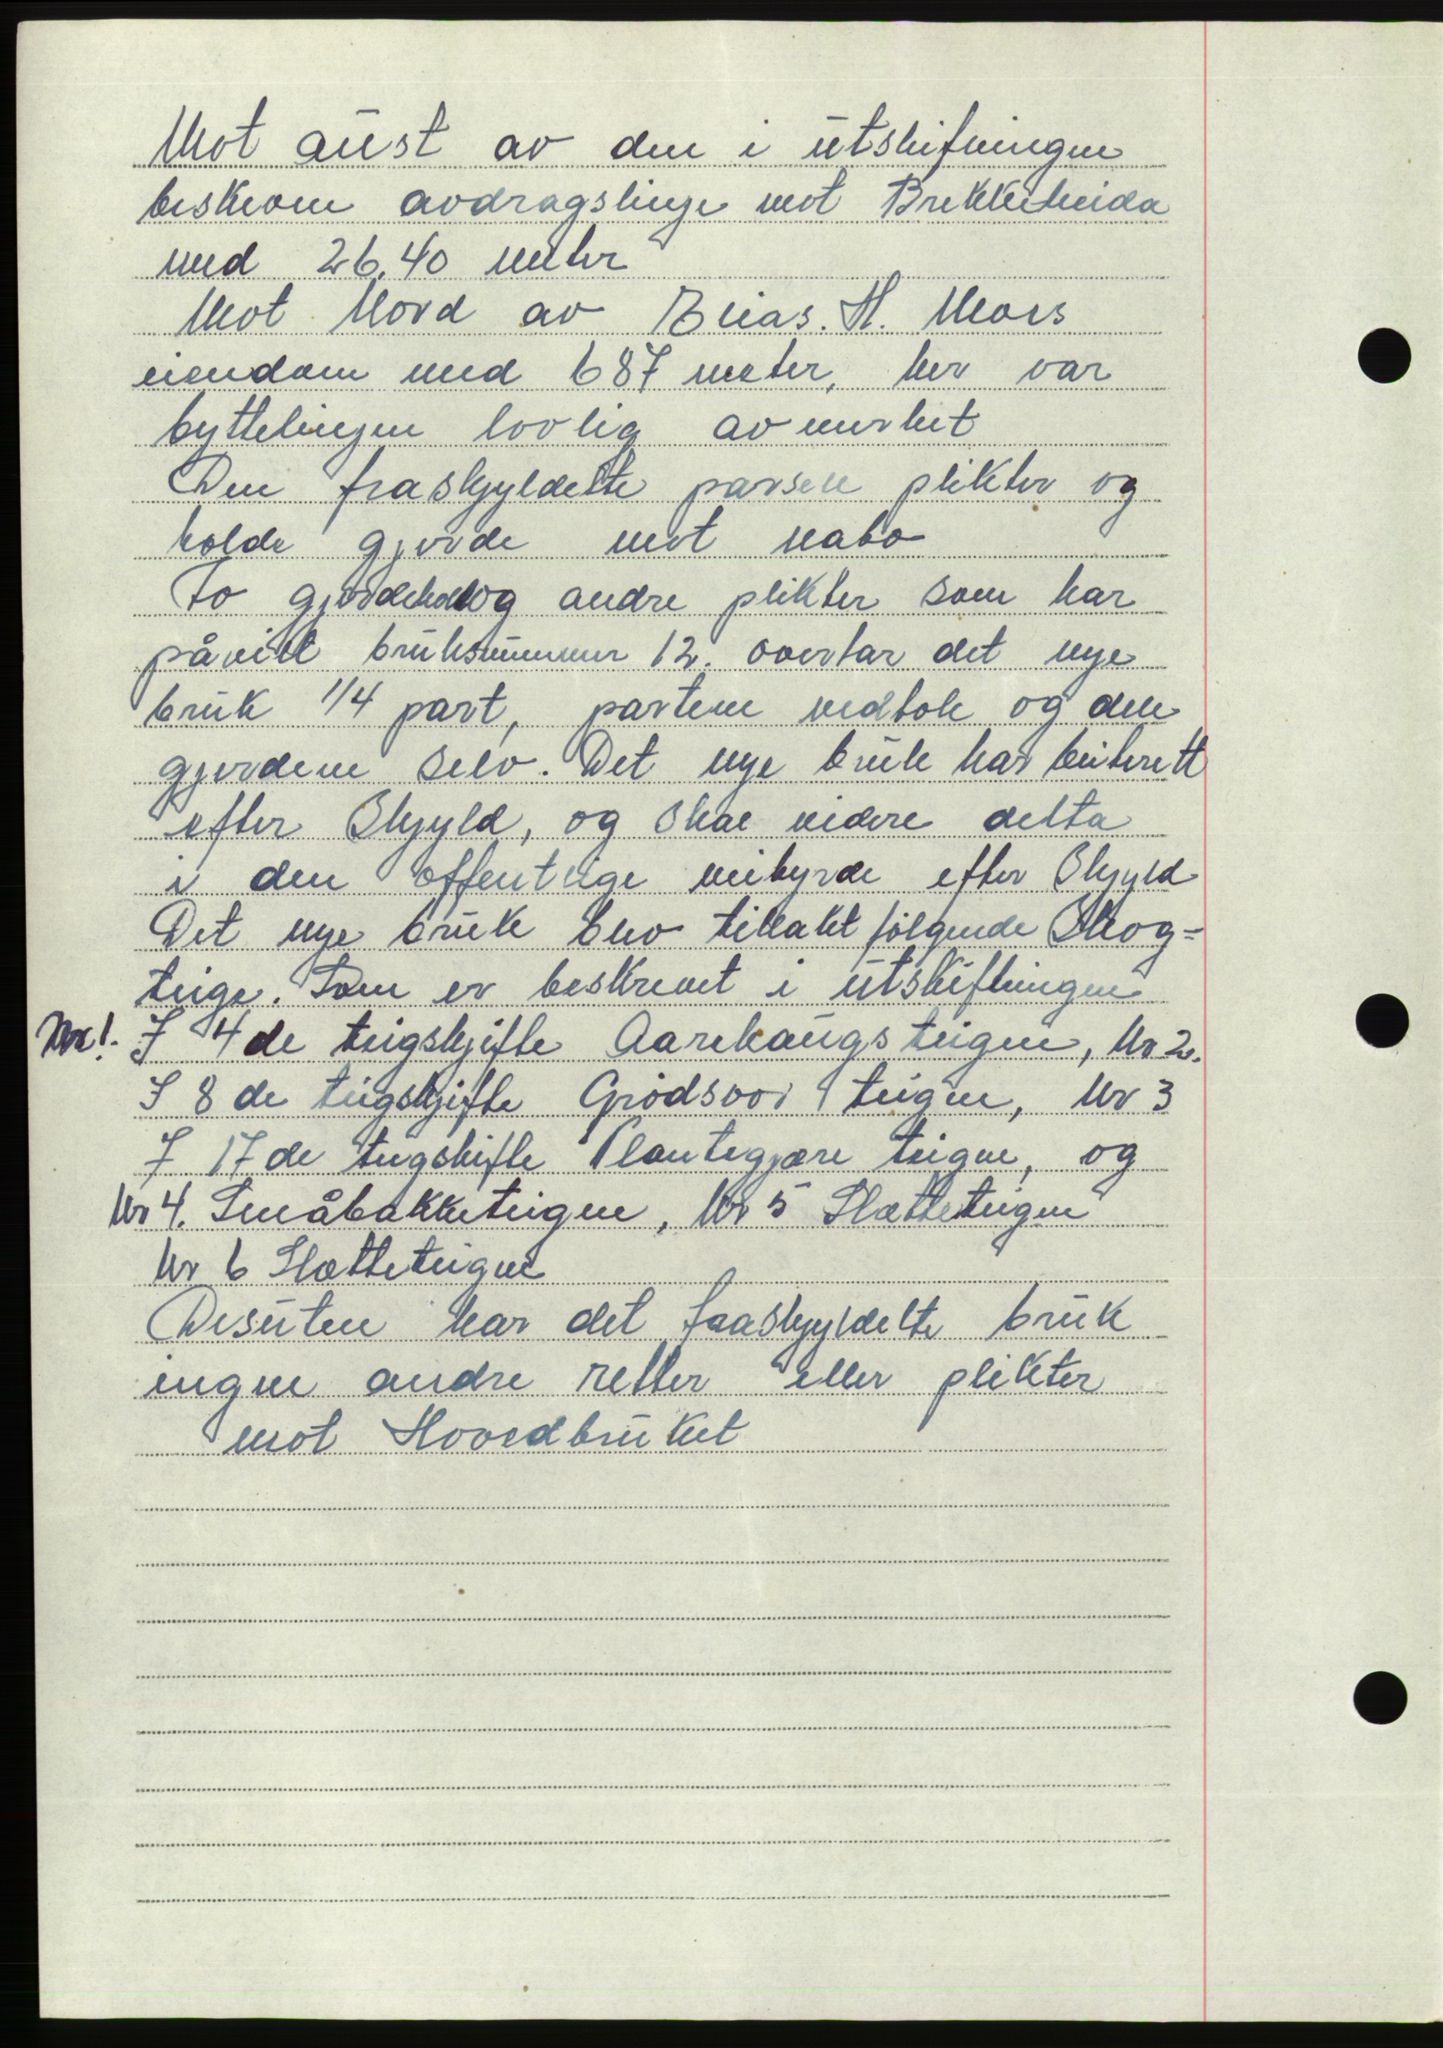 Mot aust av den i utskifningen
beskrevne avdragslinje mot Brekkeheida
med 26.40 meter
Mot Nord av Elias. H. Moes
eiendom med 687 meter, her var
byttelinjen lovlig avmerket
Den fraskyldelte parsell plikter og
holde gjerde mot nabo
To gjerdehold og andre plikter som har
påvilt bruksnummer 12. overtar det nye
bruk 1/4 part, partene vedtok og dele
gjerdene selv. Det nye bruk har beiterett
efter Skyld, og skal videre delta
i den offentlige veibyrde efter Skyld
Det nye bruk blev tillakt følgende Skog-
teige. Som er beskrevet i utskiftningen
Nr 1. I 4de teigskifte Aarekaugsteigen, Nr 2.
I 8de teigskifte Grødsvor teigen, Nr 3
I 17de teigskifte Plantegjære teigen, og
Nr 4. Småbakketeigen, Nr 5 Slætteteigen
Nr 6 Slætteteigen
Desuten har det fraskyldelte bruk
ingen andre retter eller plikter
mot Hovedbruket